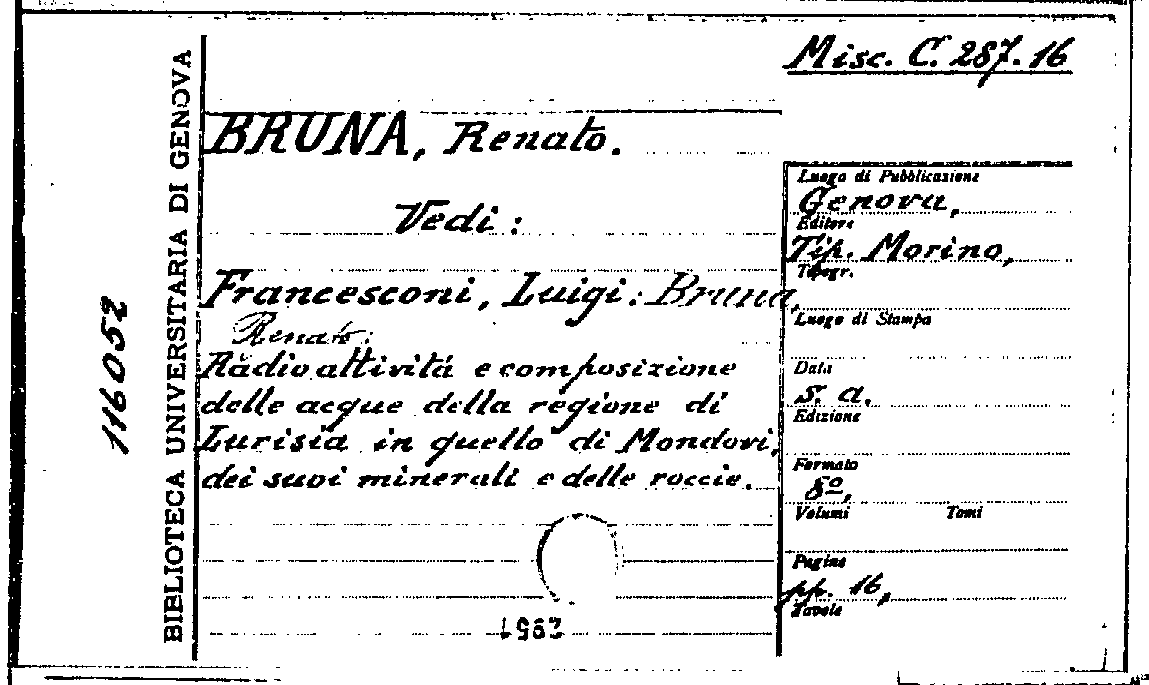 Misc. C. 287.16
BRUNA, Renato.
Vedi:
Francesconi, Luigi: Bruna,
Renato:
Radioattività e composizione
delle acque della regione di
Lurisia in quello di Mondovi,
dei suoi minerali e delle roccie.
Luogo di Pubblicazione
Genova,
Editore
Tip. Morino,
Tipogr.
Luogo di Stampa
Data
s. a.
Edizione
Formato
8º,
Volumi Tomi
Pagine
pp. 16,
Tavole
BIBLIOTECA UNIVERSITARIA DI GENOVA
116052